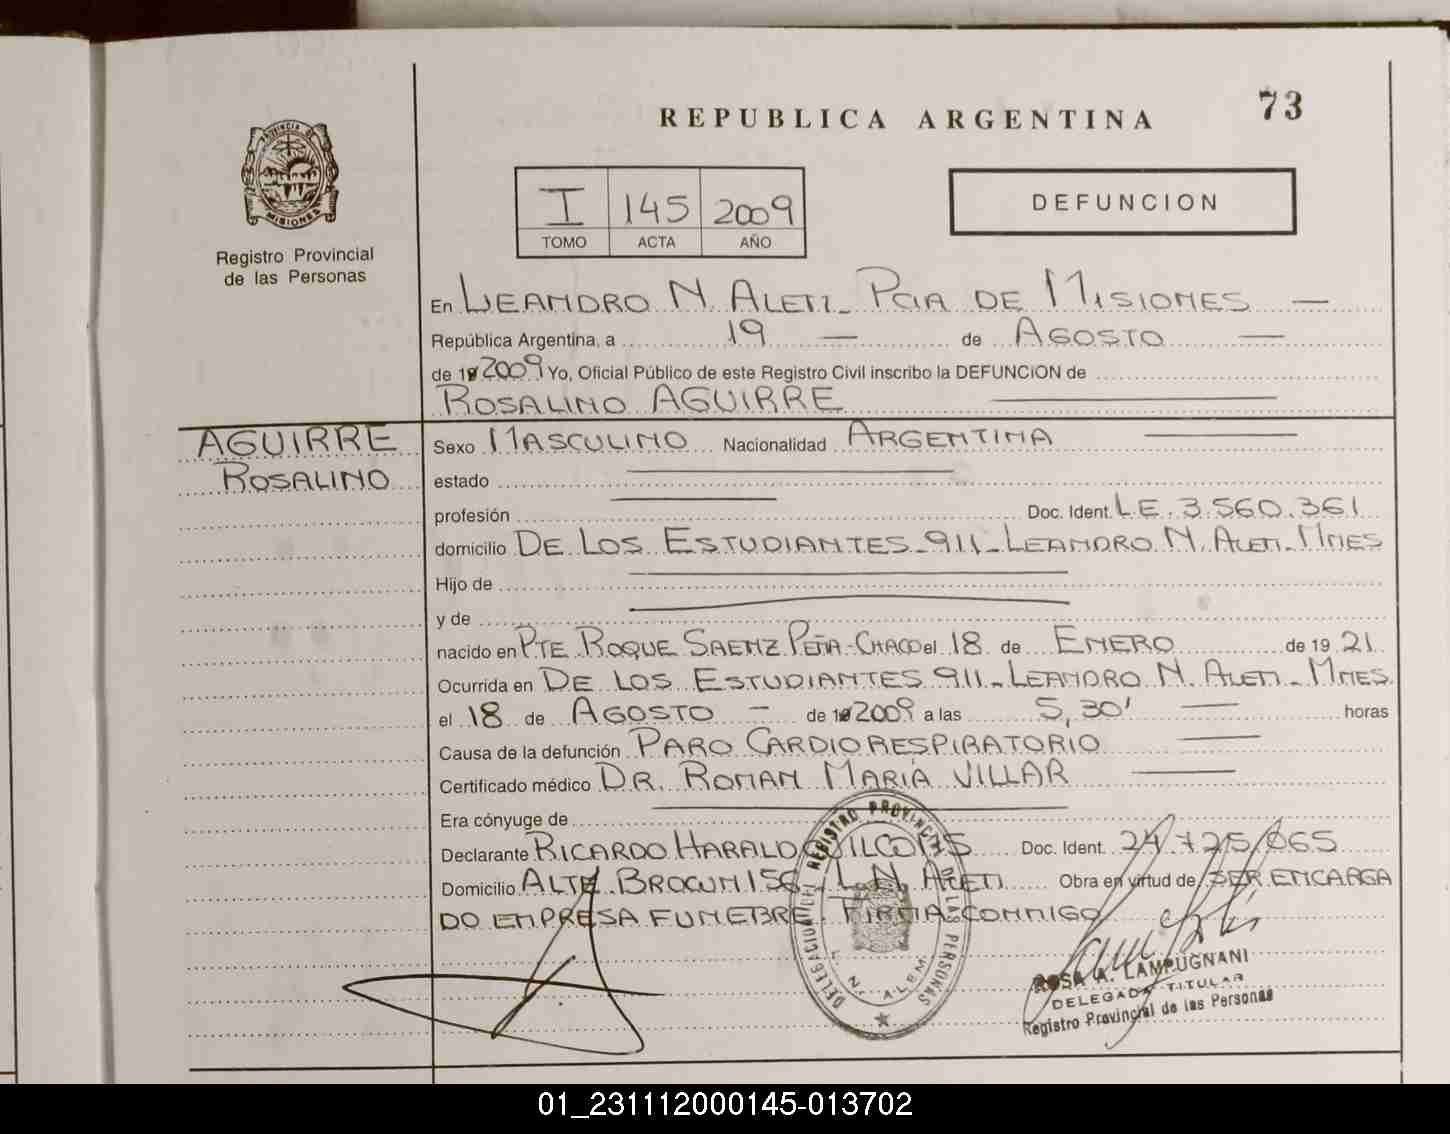 73
REPUBLICA ARGENTINA
PROVINCIA DE
MISIONES
Registro Provincial
de las Personas
I 145 2009
TOMO ACTA AÑO
DEFUNCION
En LEANDRO N. ALEM - PCIA DE MISIONES —
República Argentina, a 19 — de AGOSTO —
de 19 2009 Yo, Oficial Público de este Registro Civil inscribo la DEFUNCION de
ROSALINO AGUIRRE
AGUIRRE
ROSALINO
Sexo MASCULINO Nacionalidad ARGENTINA
estado
profesión Doc. Ident. L.E. 3.560.361
domicilio DE LOS ESTUDIANTES - 911 - LEANDRO N. ALEM - MNES
Hijo de
y de
nacido en PTE ROQUE SAENZ PEÑA - CHACO el 18 de ENERO de 19 21
Ocurrida en DE LOS ESTUDIANTES 911 - LEANDRO N. ALEM - MNES.
el 18 de AGOSTO - de 19 2009 a las 5,30' horas
Causa de la defunción PARO CARDIORESPIRATORIO
Certificado médico DR. ROMAN MARIA VILLAR
Era cónyuge de
Declarante RICARDO HARALDO Doc. Ident. 24.725.065
Domicilio ALTE BROWN 156 - L.N. ALEM Obra en virtud de SER ENCARGA
DO EMPRESA FUNEBRE. FIRMA CONMIGO
DELEGACION DEL REGISTRO PROVINCIAL DE LAS PERSONAS
L. N. ALEM
ROSA A. LAMPUGNANI
DELEGADA TITULAR
Registro Provincial de las Personas
01_231112000145-013702